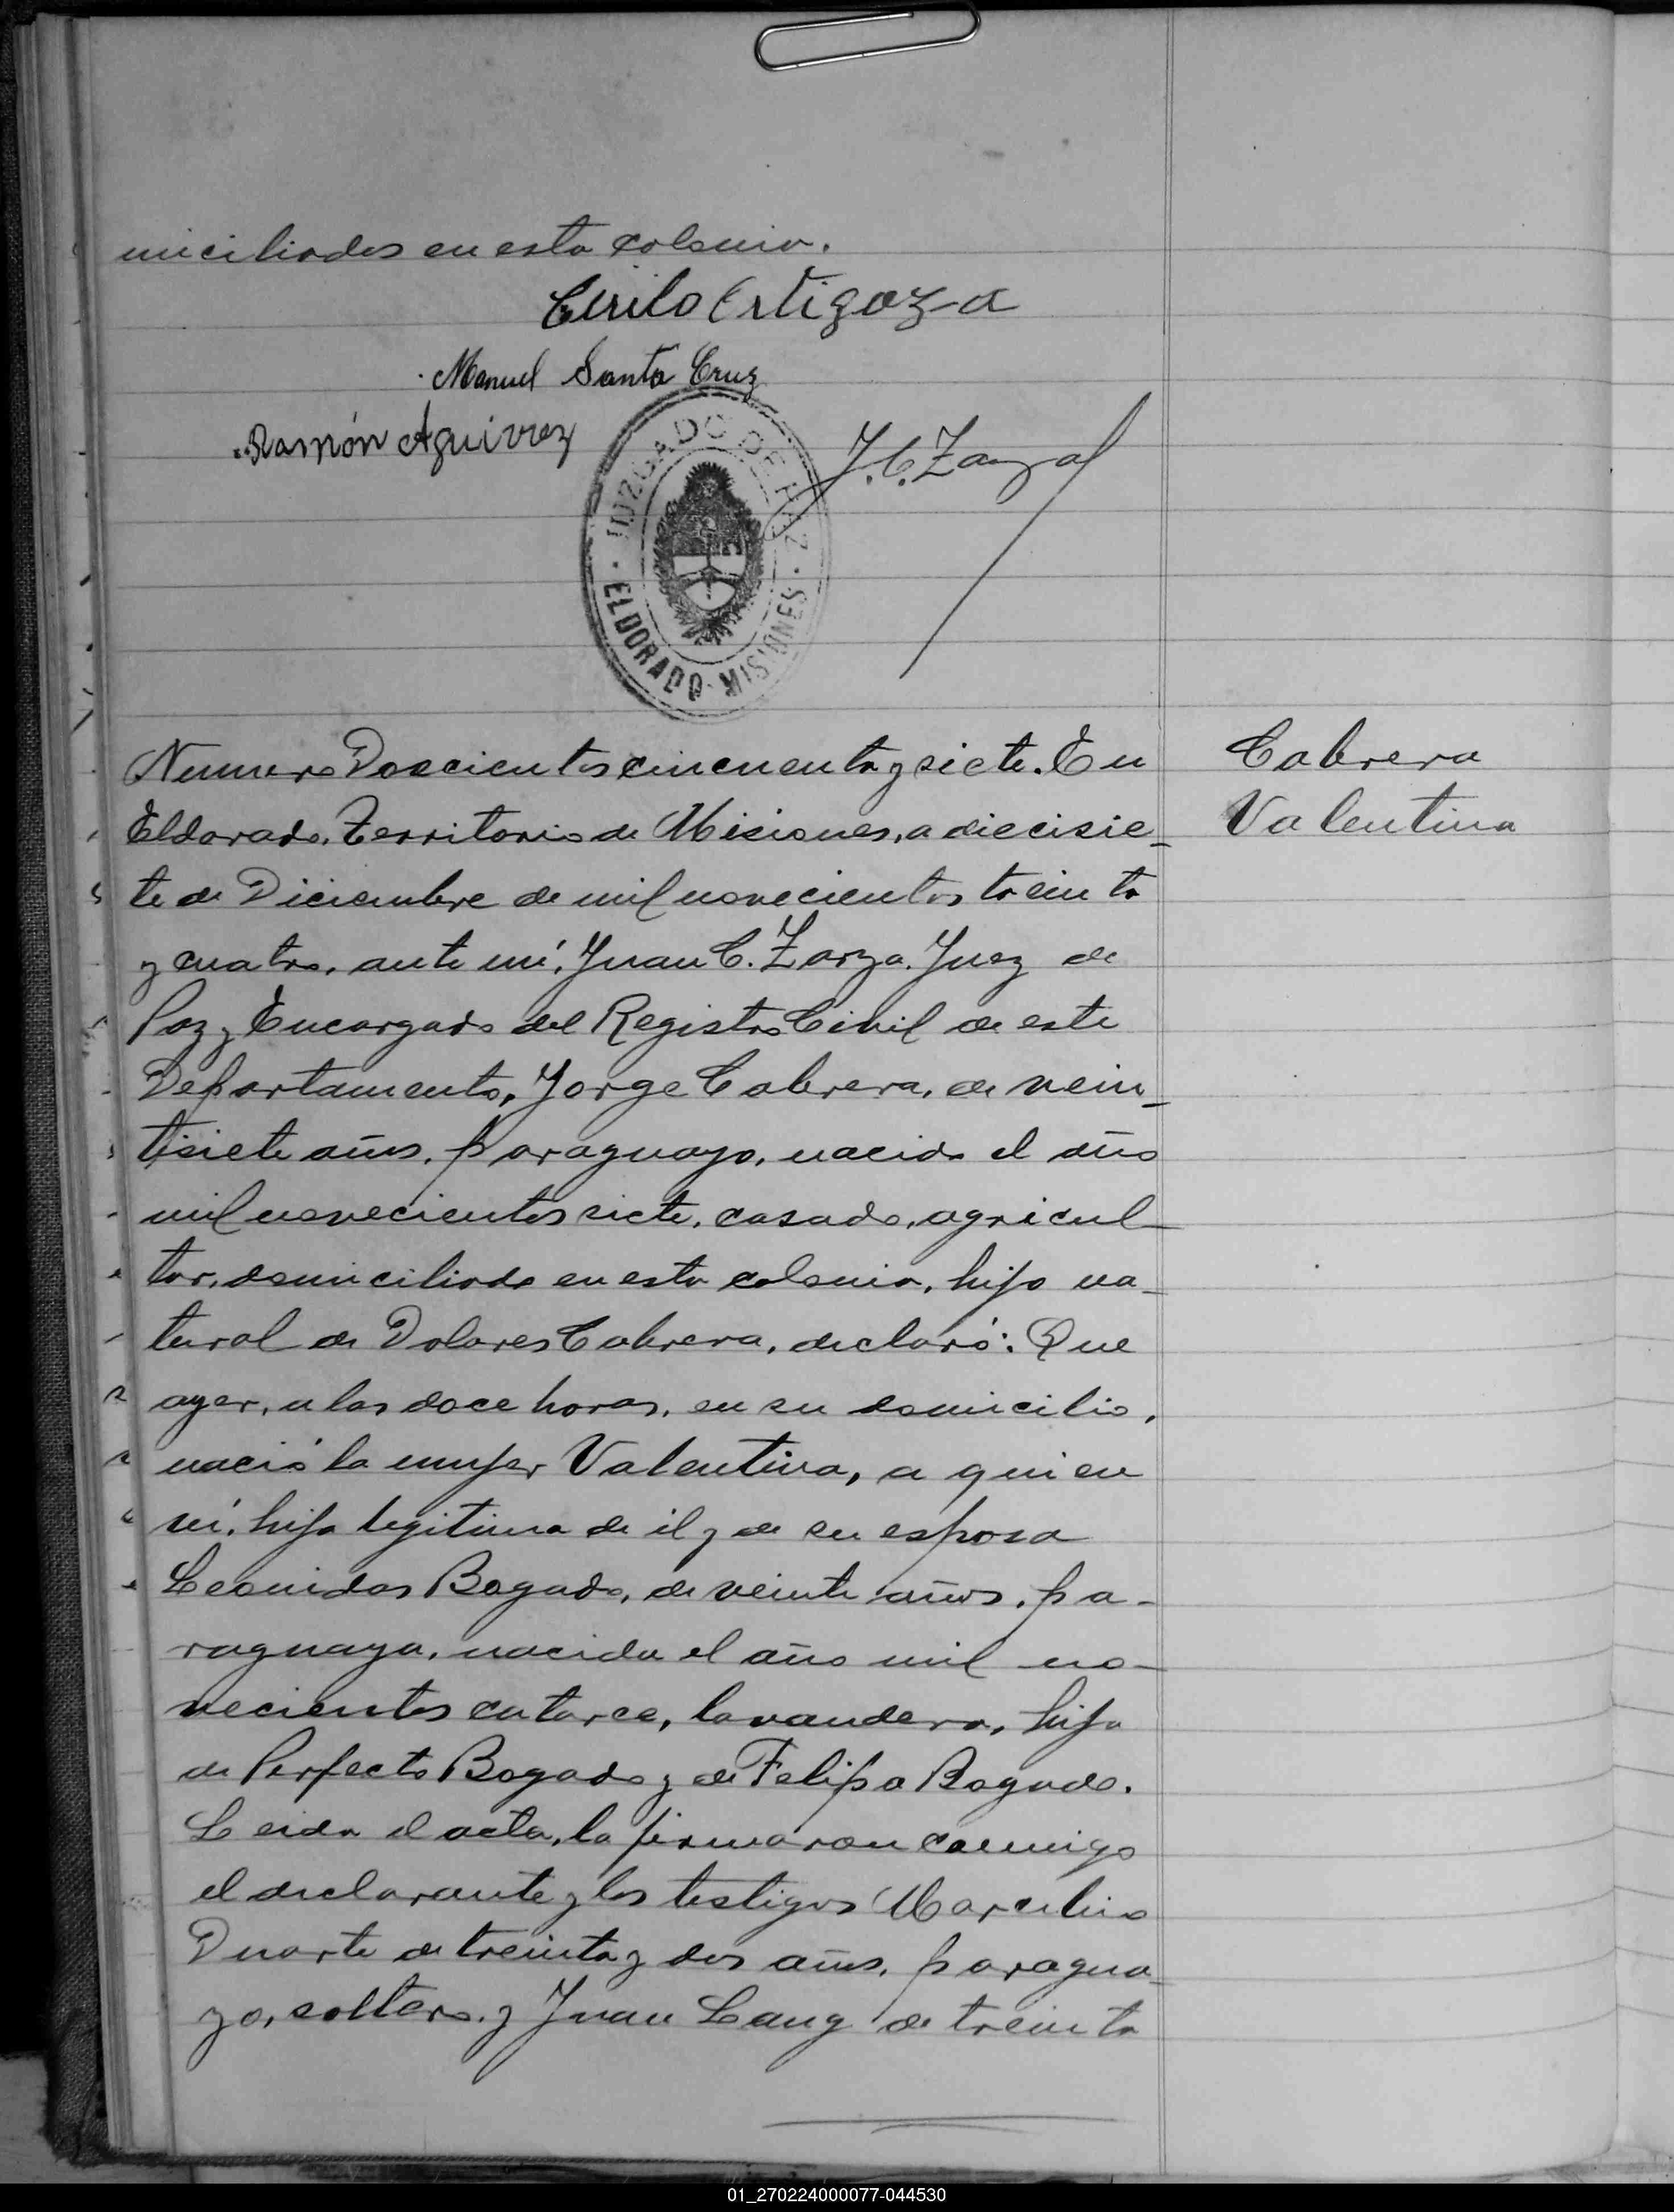 miciliados en esta colonia.
Cirilo Ortigoza
Manuel Santa Cruz
Ramón Aguirrez
J. C. Zarza
JUZGADO DE PAZ
· ELDORADO · MISIONES ·
Numero Doscientos cincuenta y siete. En
Eldorado, Territorio de Misiones, a diecisie_
te de Diciembre de mil novecientos treinta
y cuatro, ante mí, Juan C. Zarza. Juez de
Paz y Encargado del Registro Civil de este
Departamento, Jorge Cabrera, de vein_
tisiete años, paraguayo, nacido el año
mil novecientos siete, casado, agricul_
tor, domiciliado en esta colonia, hijo na_
tural de Dolores Cabrera, declaró: Que
ayer, a las doce horas, en su domicilio,
nació la mujer Valentina, a quien
ví, hija legitima de él y de su esposa
Leonidas Bogado, de veinte años, pa_
raguaya, nacida el año mil no_
vecientos catorce, lavandera, hija
de Perfecto Bogado y de Felipa Bogado.
Leida el acta, la firmaron conmigo
el declarante y los testigos Marcelino
Duarte de treinta y dos años, paragua_
yo, soltero, y Juan Lang de treinta
Cabrera
Valentina
01_270224000077-044530